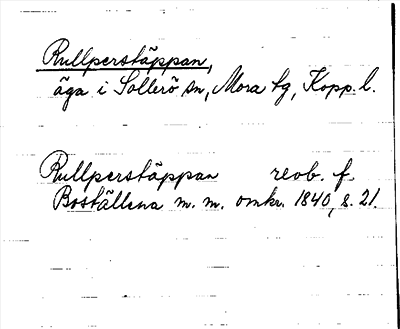 Rullperstäppan,
äga i Sollerö sn, Mora tg, Kopp. l.
Rullperstäppan reob. f.
Boställena m. m. omkr. 1840, s. 21.